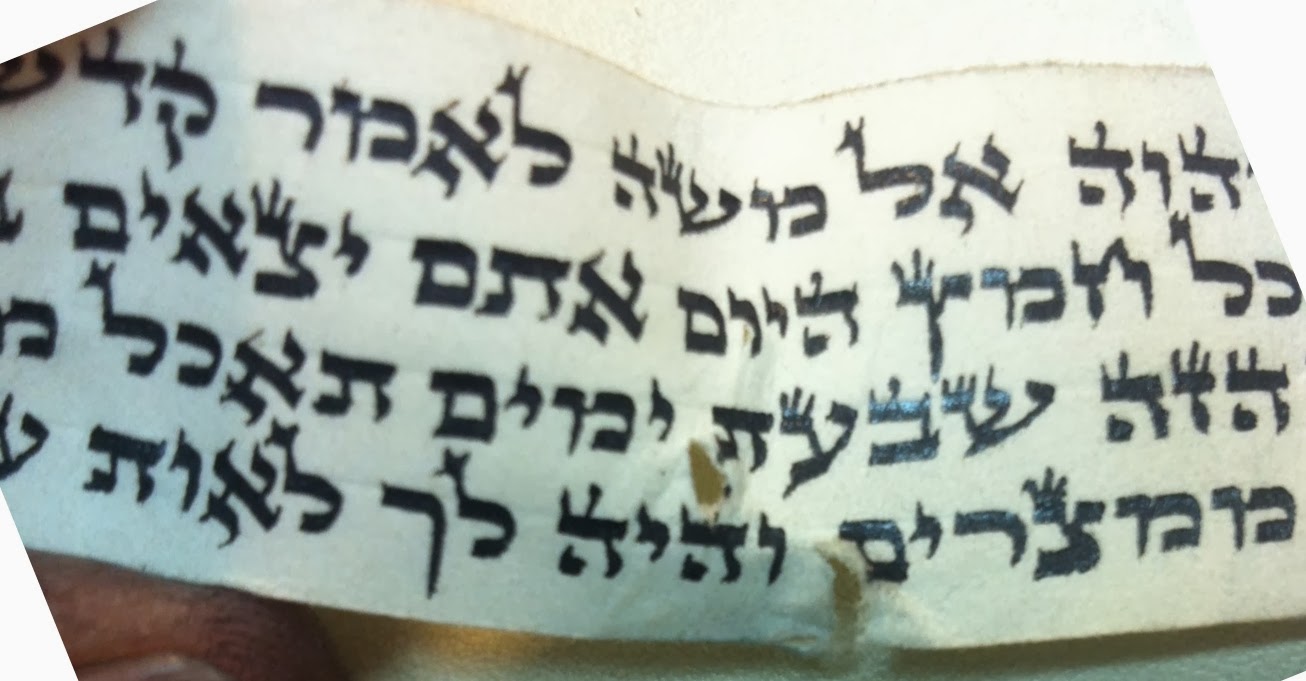 יהוה אל משה לאמר קדש
כל חמץ היום אתם יצאים
הזה שבעת ימים תאכל
ממצרים והיה לך לאות